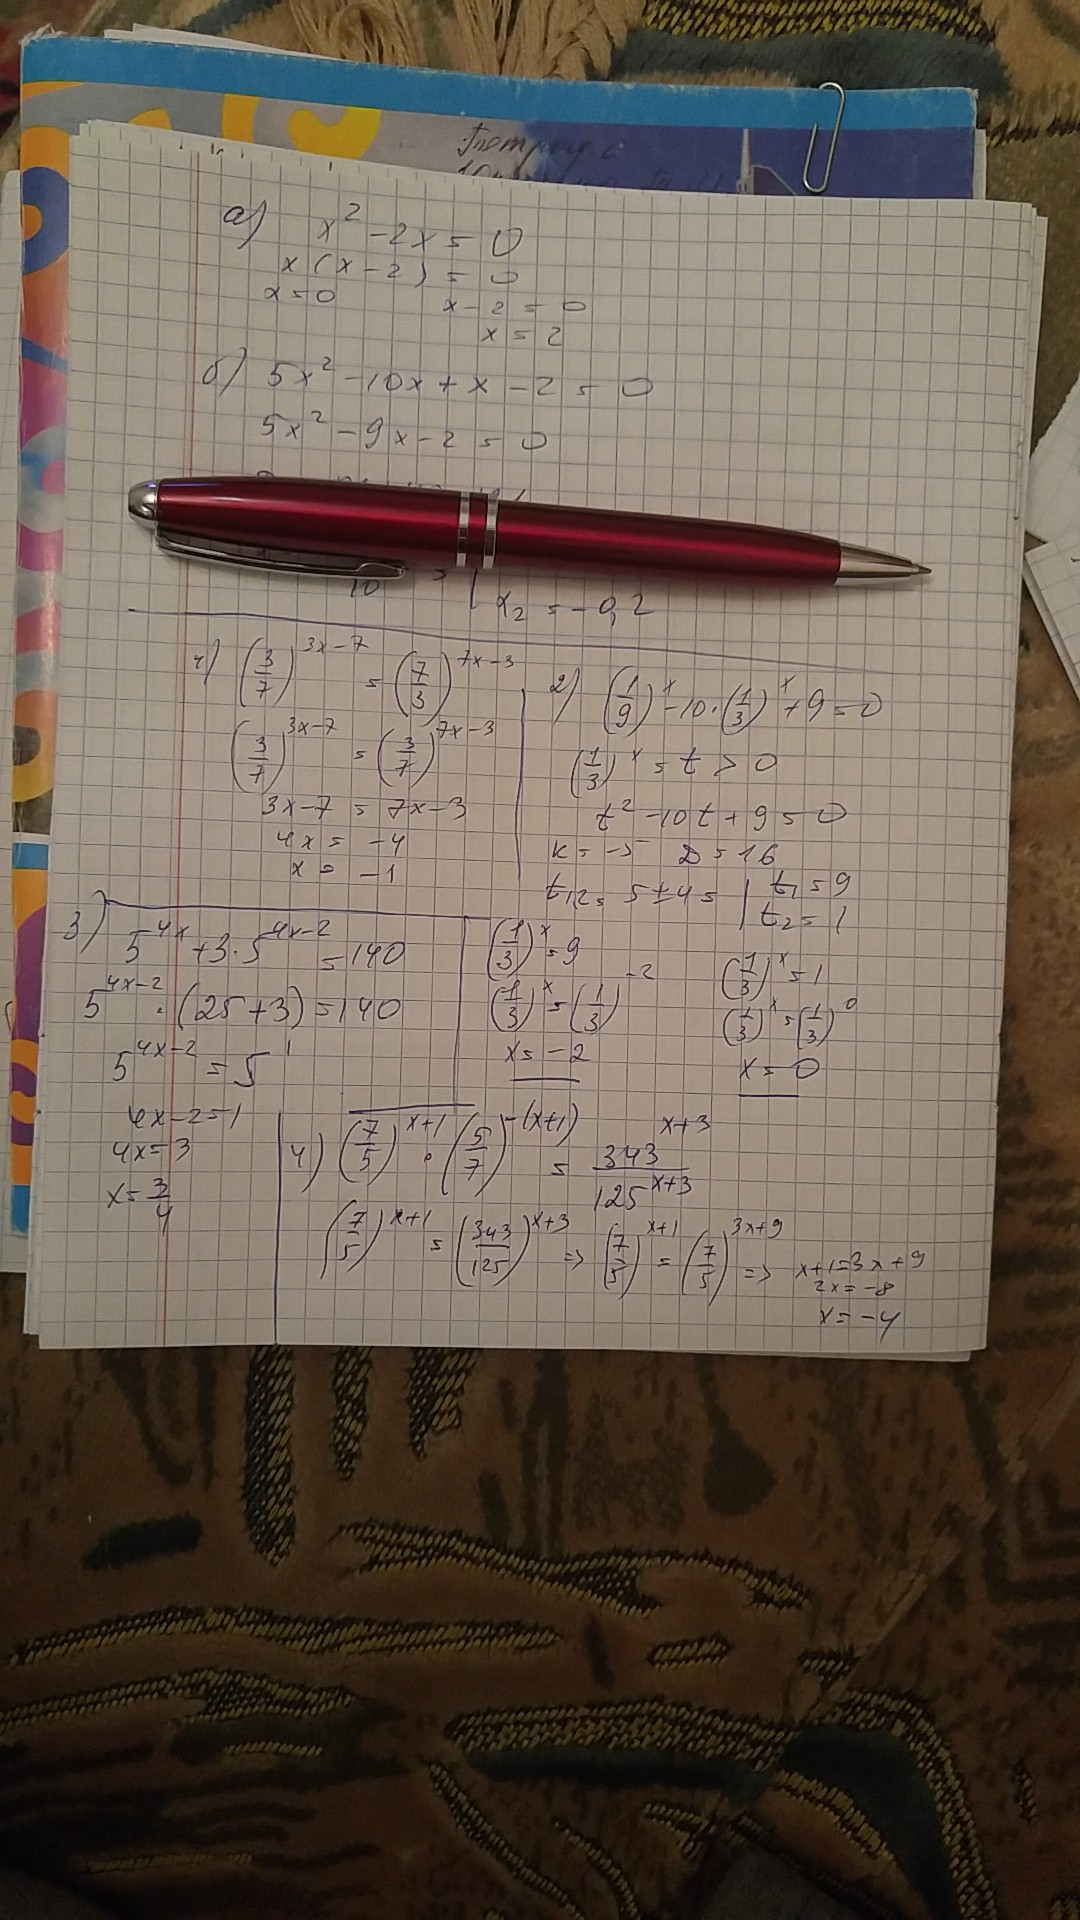 Тетрадь
а) x² - 2x = 0
x(x - 2) = 0
x = 0    x - 2 = 0
x = 2
б) 5x² - 10x + x - 2 = 0
5x² - 9x - 2 = 0
10
x₂ = -0,2
1) (3/7)^(3x-7) = (7/3)^(7x-3)
(3/7)^(3x-7) = (3/7)^(7x-3)
3x-7 = 7x-3
4x = -4
x = -1
2) (1/9)^x - 10·(1/3)^x + 9 = 0
(1/3)^x = t > 0
t² - 10t + 9 = 0
k = -5  D = 16
t₁,₂ = 5 ± 4 = | t₁ = 9
t₂ = 1
(1/3)^x = 9
(1/3)^x = (1/3)^(-2)
x = -2
(1/3)^x = 1
(1/3)^x = (1/3)^0
x = 0
3) 5^(4x) + 3·5^(4x-2) = 140
5^(4x-2) · (25+3) = 140
5^(4x-2) = 5^1
4x-2=1
4x=3
x=3/4
4) (7/5)^(x+1) · (5/7)^(-(x+1)) = 343^(x+3)/125^(x+3)
(7/5)^(x+1) = (343/125)^(x+3) => (7/5)^(x+1) = (7/5)^(3x+9) => x+1=3x+9
2x = -8
x = -4